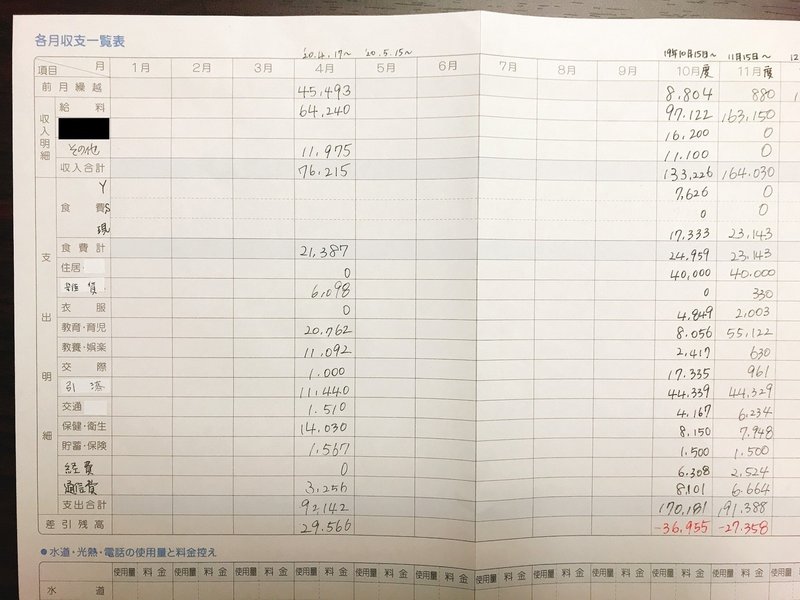 各月収支一覧表
'20.4.17～ '20.5.15～ 19年10月15日～ 11月15日～ 12
項目 月 1月 2月 3月 4月 5月 6月 7月 8月 9月 10月度 11月度
前月繰越 45,493 8,804 880
収入明細 給料 64,240 97,122 163,150
16,200 0
その他 11,975 11,100 0
収入合計 76,215 133,226 164,030
支出明細 Y 7,626 0
食費 S 0 0
現 17,333 23,143
食費計 21,387 24,959 23,143
住居 0 40,000 40,000
雑費 6,098 0 330
衣服 0 4,849 2,003
教育・育児 20,762 8,056 55,122
教養・娯楽 11,092 2,417 630
交際 1,000 17,335 961
引落 11,440 44,339 44,329
交通 1,510 4,167 6,234
保健・衛生 14,030 8,150 7,948
貯蓄・保険 1,567 1,500 1,500
経費 0 6,308 2,524
通信費 3,256 8,101 6,664
支出合計 92,142 170,181 191,388
差引残高 29,566 -36,955 -27,358
●水道・光熱・電話の使用量と料金控え
使用量 料金 使用量 料金 使用量 料金 使用量 料金 使用量 料金 使用量 料金 使用量 料金 使用量 料金 使用量 料金 使用量 料金 使用量 料金 使用量
水道